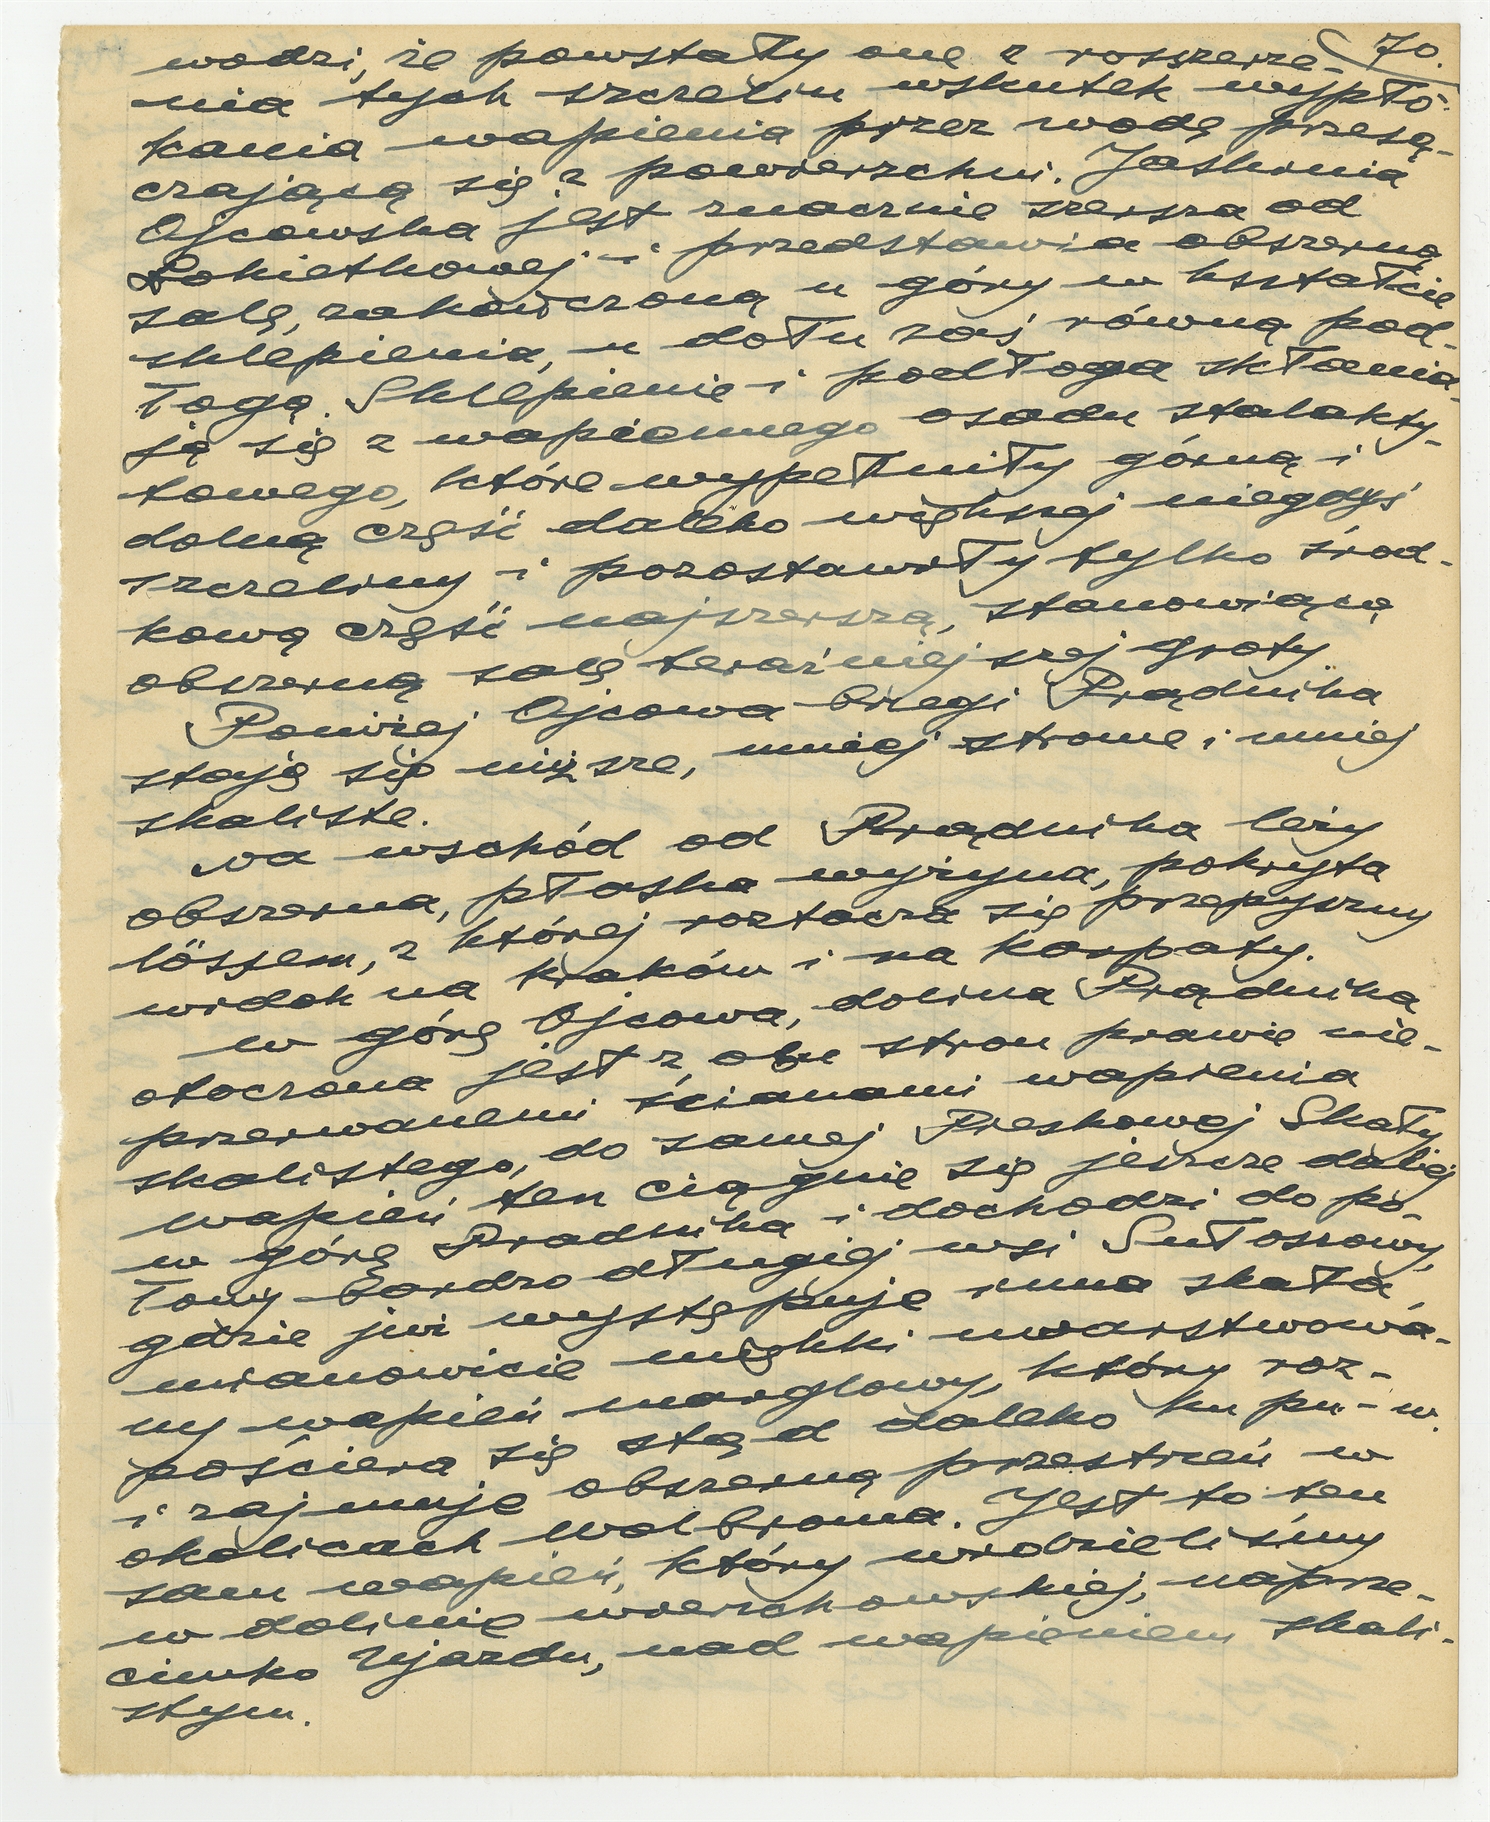 70.
wodzi, że powstały one z rozszerze-
nia tych szczelin wskutek wypłó-
kania wapienia przez wodę przesą-
czającą się z powierzchni. Jaskinia
Ojcowska jest znacznie szersza od
Łokietkowej i przedstawia obszerną
salę, zakończoną u góry w kształcie
sklepienia, u dołu zaś równą pod-
łogą. Sklepienie i podłoga skłania-
ją się z wapiennego osadu stalakty-
towego, które wypełniły górną i
dolną część daleko większej niegdyś
szczeliny i pozostawiły tylko środ-
kową część najszerszą, stanowiącą
obszerną salę teraźniejszej groty
Poniżej Ojcowa brzegi Prądnika
stają się niższe, mniej strome i mniej
skaliste.
Na wschód od Prądnika leży
obszerna, płaska wyżyna, pokryta
lössem, z której roztacza się przepyszny
widok na Kraków i na Karpaty.
W górę Ojcowa, dolina Prądnika
otoczona jest z obu stron prawie nie-
przerwanemi ścianami wapienia
skalistego, do samej Pieskowej Skały
Wapień ten ciągnie się jeszcze dalej
w górę Pradnika i dochodzi do po-
łowy bardzo długiej wsi Sułoszowy,
gdzie już występuje inna skała,
mianowicie miękki uwarstwowa-
ny wapień marglowy, który roz-
pościera się stąd daleko ku pn-w.
i zajmuje obszerną przestrzeń w
okolicach Wolbroma. Jest to ten
sam wapień, który widzieliśmy
w dolinie wierzchowskiej, naprze-
ciwko Zjazdu, nad wapieniem skali-
stym.